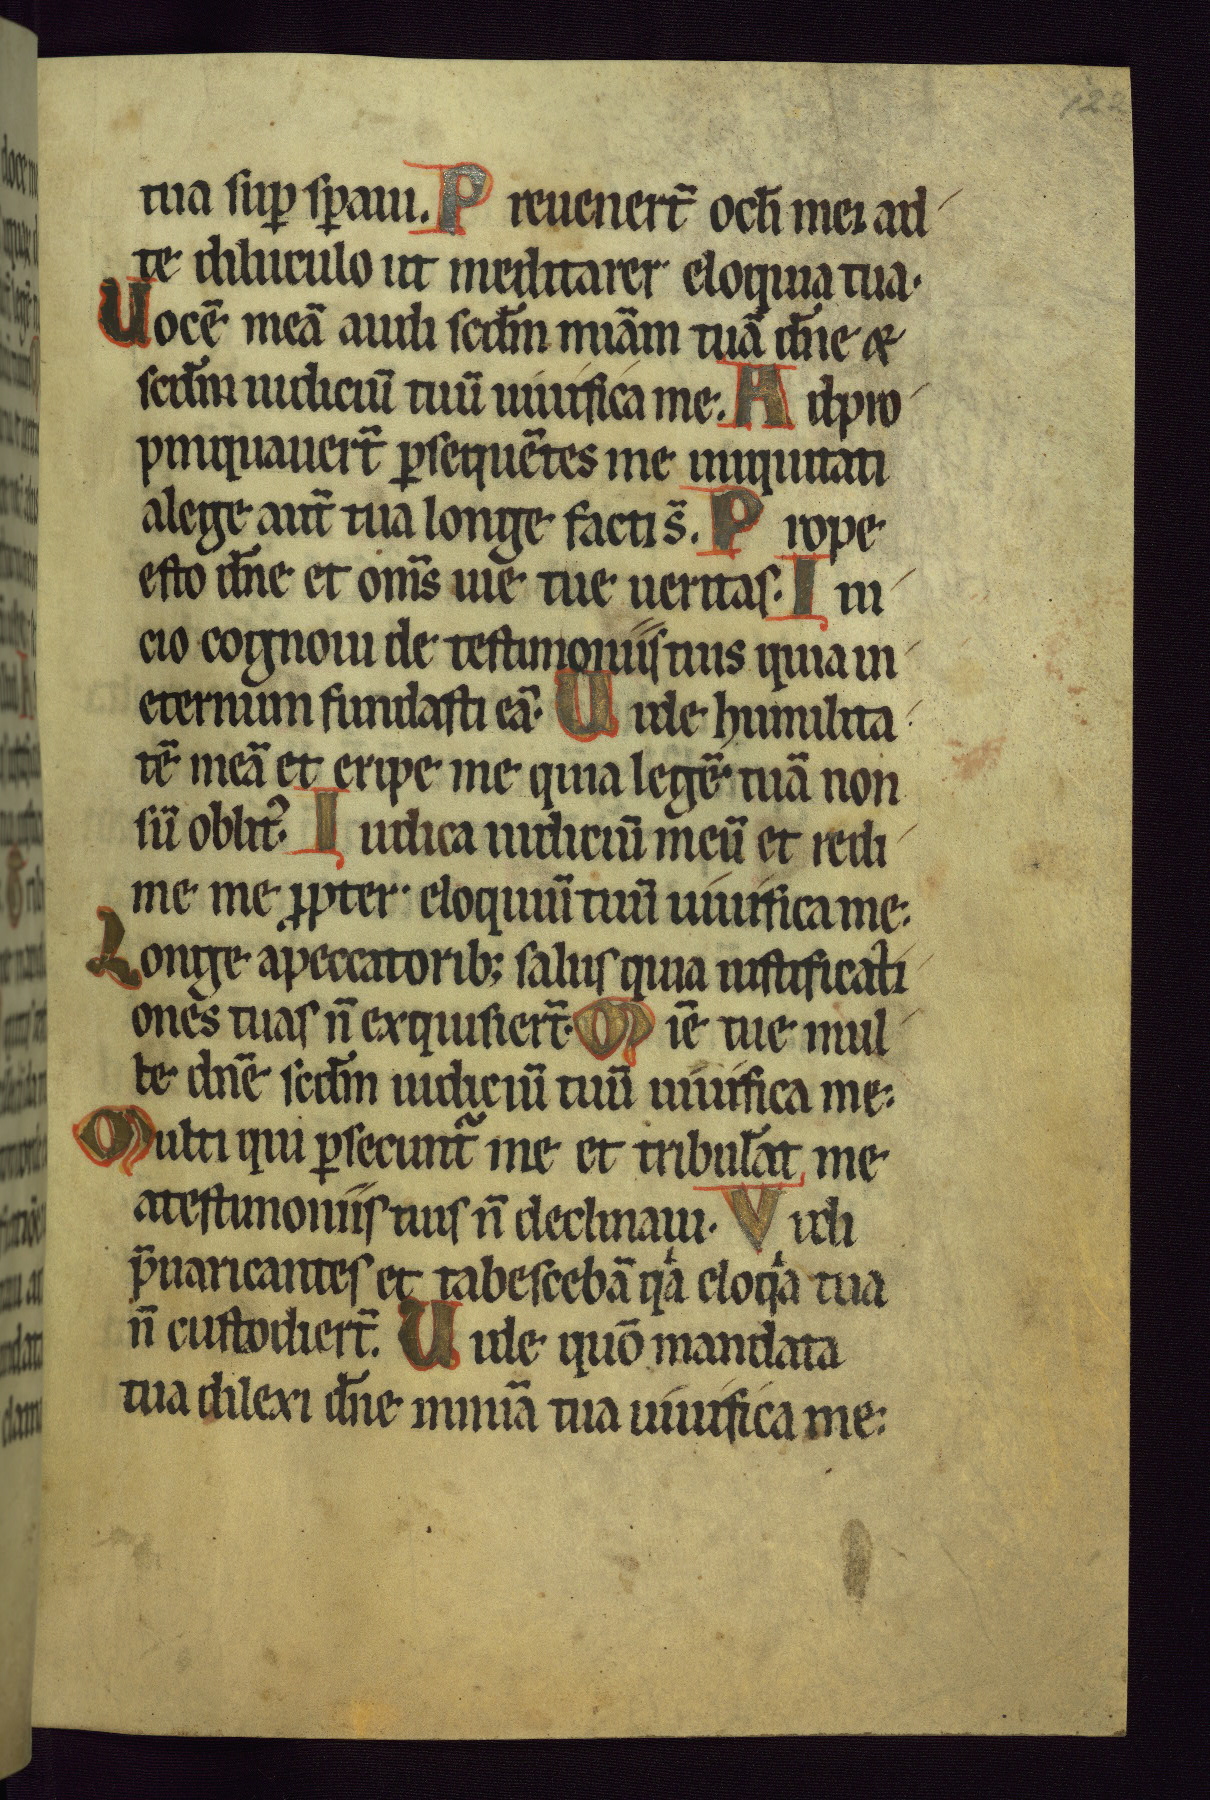 122
tua sup̱ sp̱aui. P reuenerт̄ ocłi mei ad
te diluculo ut meditarer eloquia tua.
Uocē meā audi scd̄m miām tuā dn̄e &
scd̄m iudiciū tuū uiuifica me. A dpro
pinquauerт̄ p̱sequētes me iniquitati
alege aut̄ tua longe facti s̄. P rope
esto dn̄e et om̄s uie tue ueritas. I ni
cio cognoui de testimoniis tuis quia in
eternum fundasti eā. U ide humilita
tē meā et eripe me quia legē tuā non
sū oblitꝰ. I udica iudiciū meū et redi
me me ꝓpter eloquiū tuū uiuifica me.
Longe apeccatorib; salus quia iustificati
ones tuas n̄ exquisierт̄. M iē tue mul
te dn̄e scd̄m iudiciū tuū uiuifica me.
Multi qui p̱secunт̄ me et tribulāt me
atestimoniis tuis n̄ declinaui. V idi
p̄uaricantes et tabescebā qͣa eloqͣa tua
n̄ custodierт̄. U ide quō mandata
tua dilexi dn̄e inmiā tua uiuifica me.